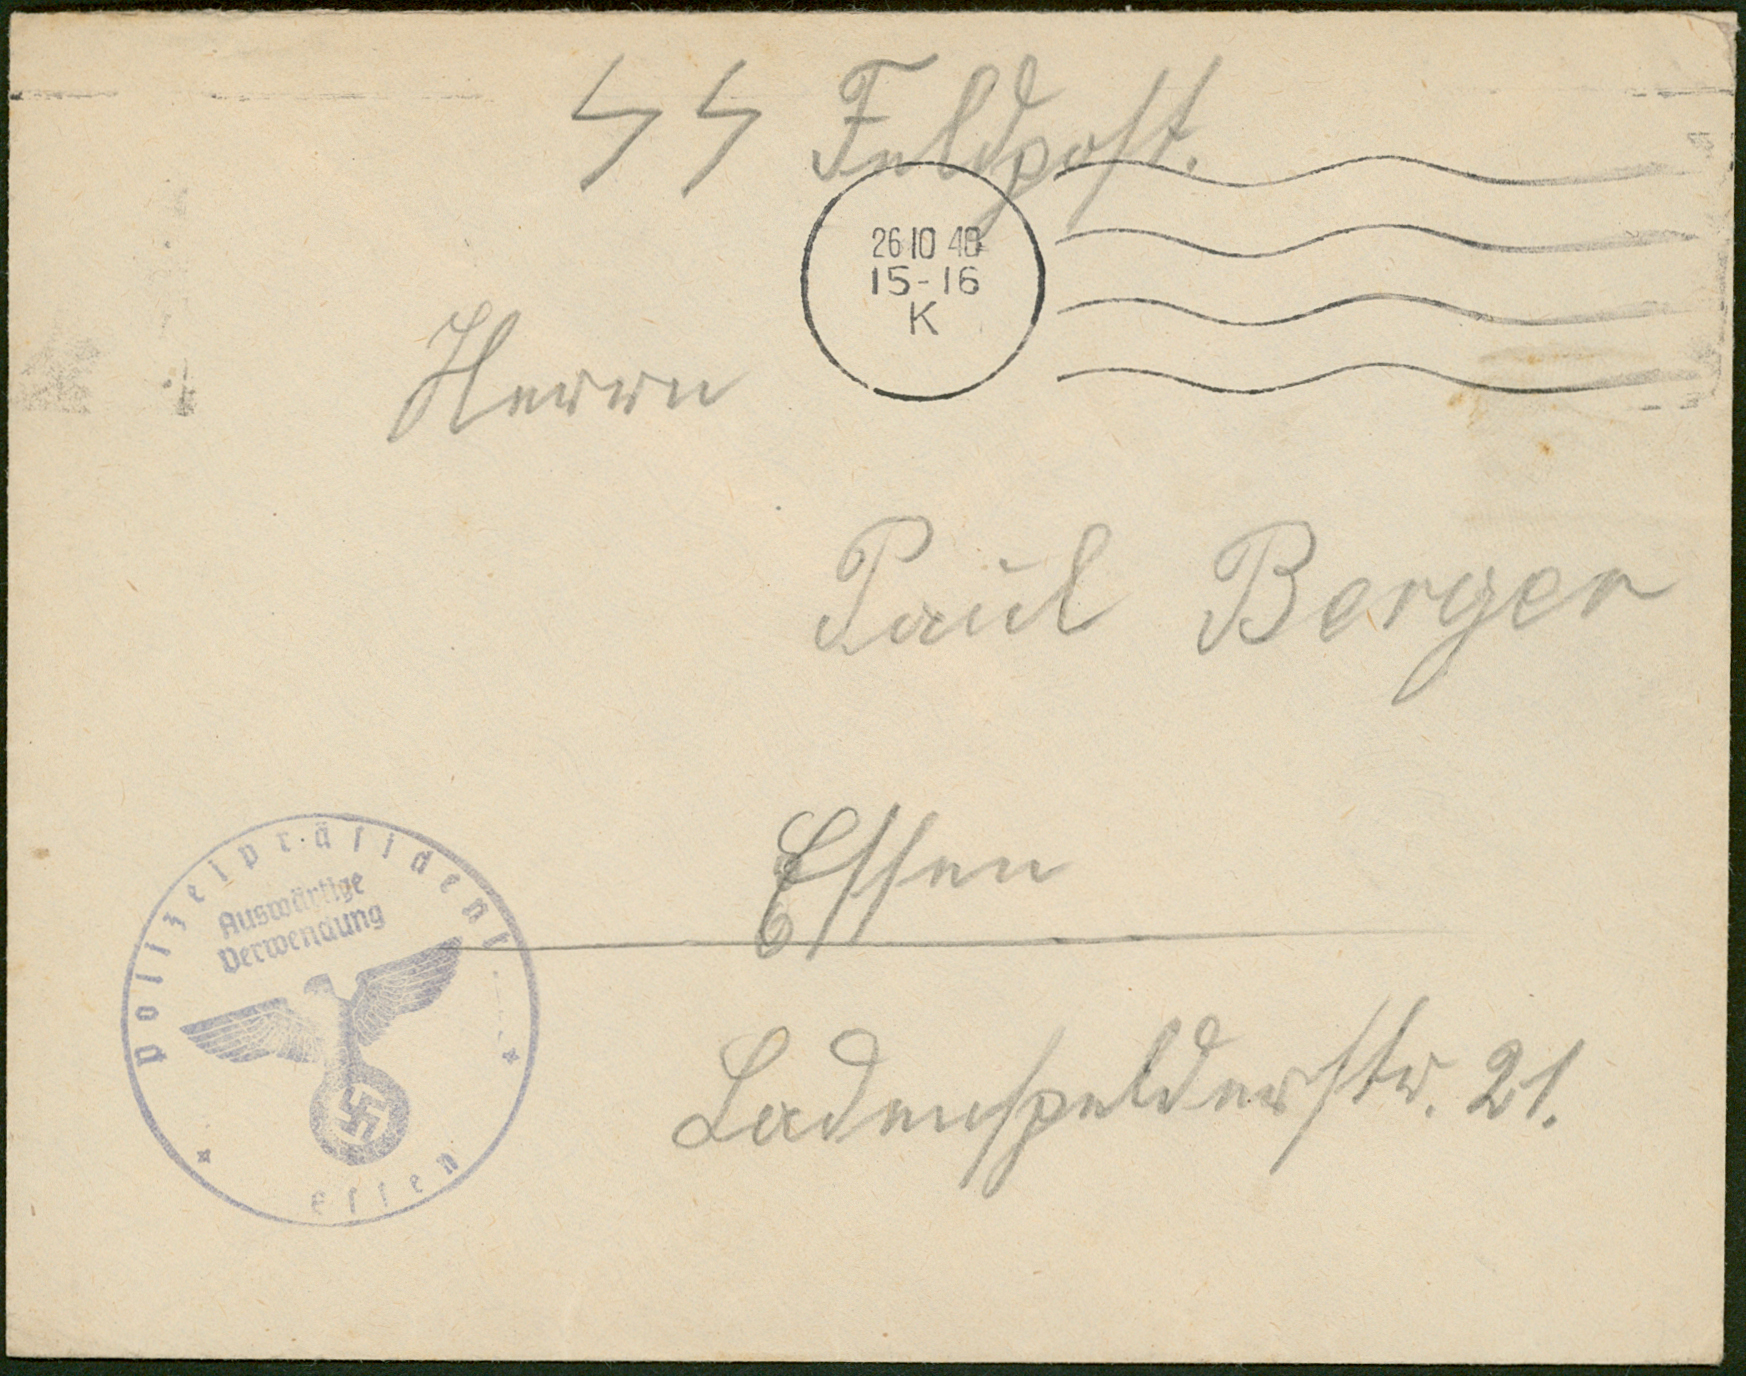 SS Feldpost.
26 10 40
15-16
K
Herrn
Paul Berger
Essen
Ladenspelderstr. 21.
Polizeipräsident
Auswärtige
Verwendung
Essen